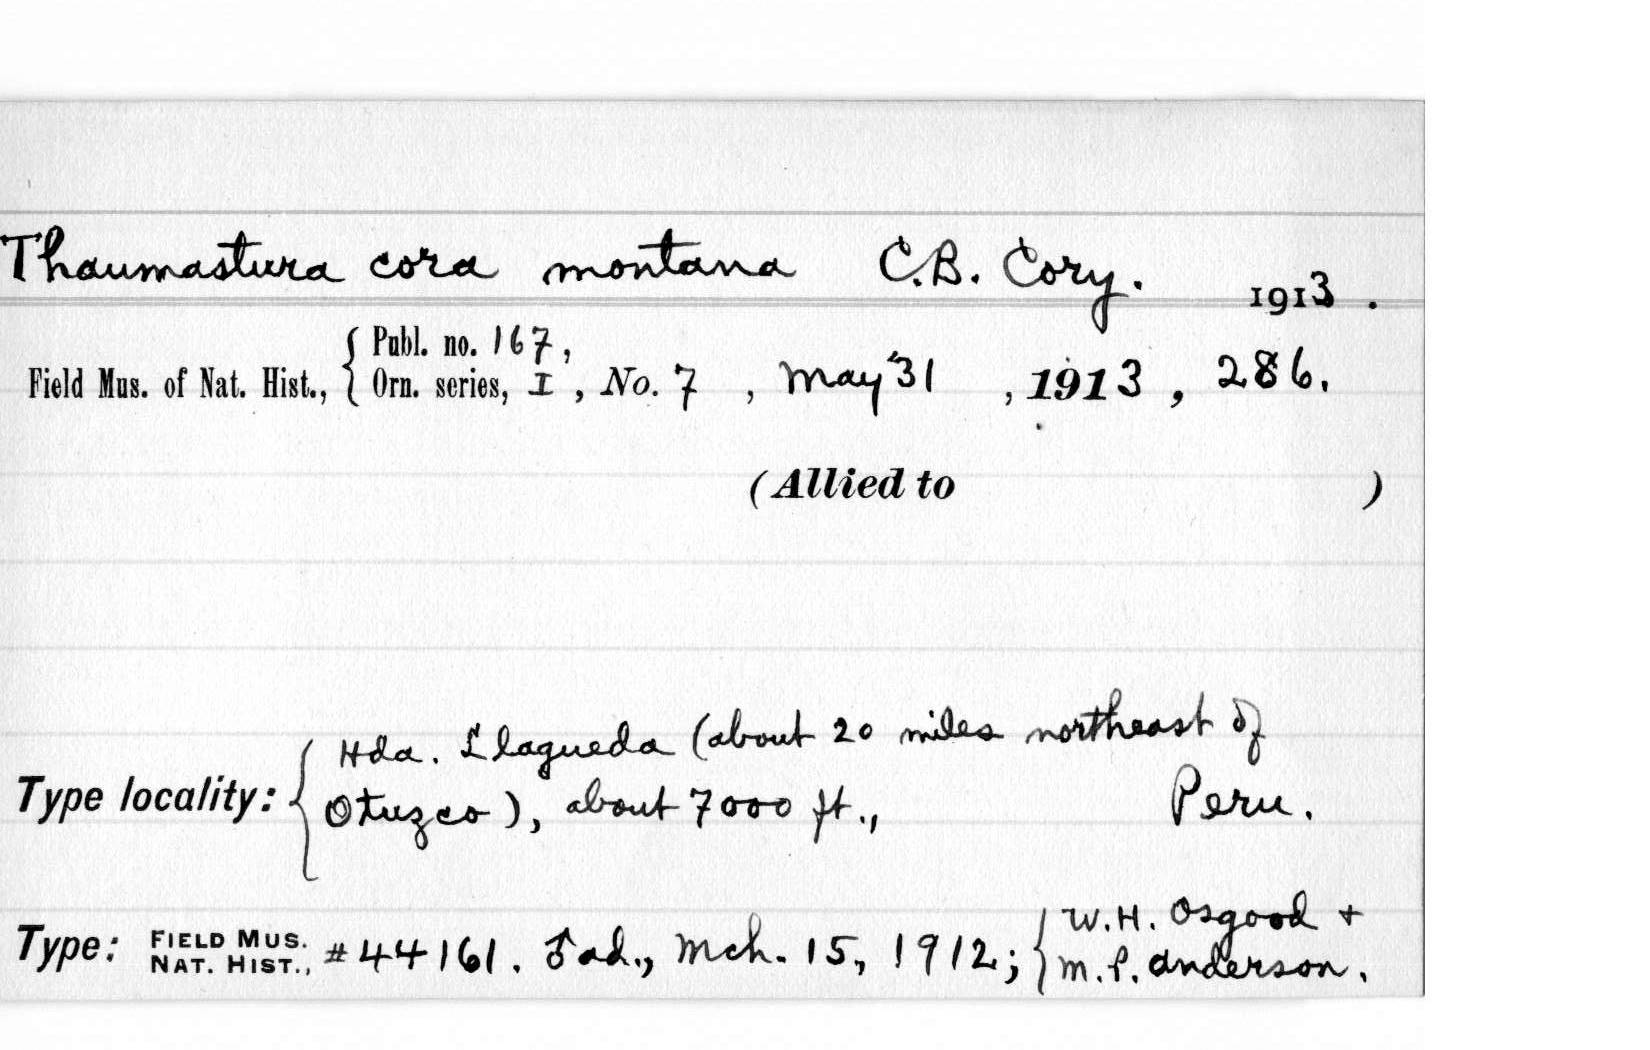 Thaumastura cora montana C.B. Cory. 1913.
Publ. no. 167,
Field Mus. of Nat. Hist., Orn. series, I, No. 7, May 31, 1913, 286.
(Allied to )
Hda. Llagueda (about 20 miles northeast of
Type locality: Otuzco), about 7000 ft., Peru.
W.H. Osgood +
Type: FIELD MUS. NAT. HIST., #44161. ♂ ad., Mch. 15, 1912; M.P. Anderson.